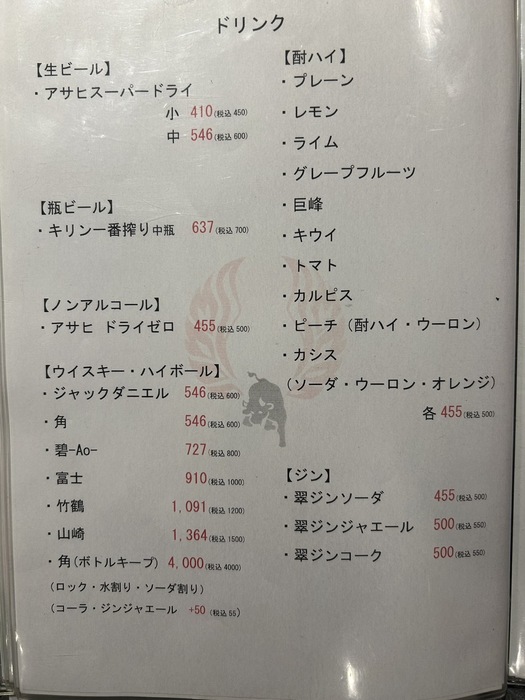 ドリンク
【生ビール】
・アサヒスーパードライ
小 410(税込 450)
中 546(税込 600)
【瓶ビール】
・キリン一番搾り中瓶 637(税込 700)
【ノンアルコール】
・アサヒ ドライゼロ 455(税込 500)
【ウイスキー・ハイボール】
・ジャックダニエル 546(税込 600)
・角 546(税込 600)
・碧-Ao- 727(税込 800)
・富士 910(税込 1000)
・竹鶴 1,091(税込 1200)
・山崎 1,364(税込 1500)
・角(ボトルキープ) 4,000(税込 4000)
(ロック・水割り・ソーダ割り)
(コーラ・ジンジャエール +50(税込 55)
【酎ハイ】
・プレーン
・レモン
・ライム
・グレープフルーツ
・巨峰
・キウイ
・トマト
・カルピス
・ピーチ（酎ハイ・ウーロン）
・カシス
（ソーダ・ウーロン・オレンジ）
各 455(税込 500)
【ジン】
・翠ジンソーダ 455(税込 500)
・翠ジンジャエール 500(税込 550)
・翠ジンコーク 500(税込 550)